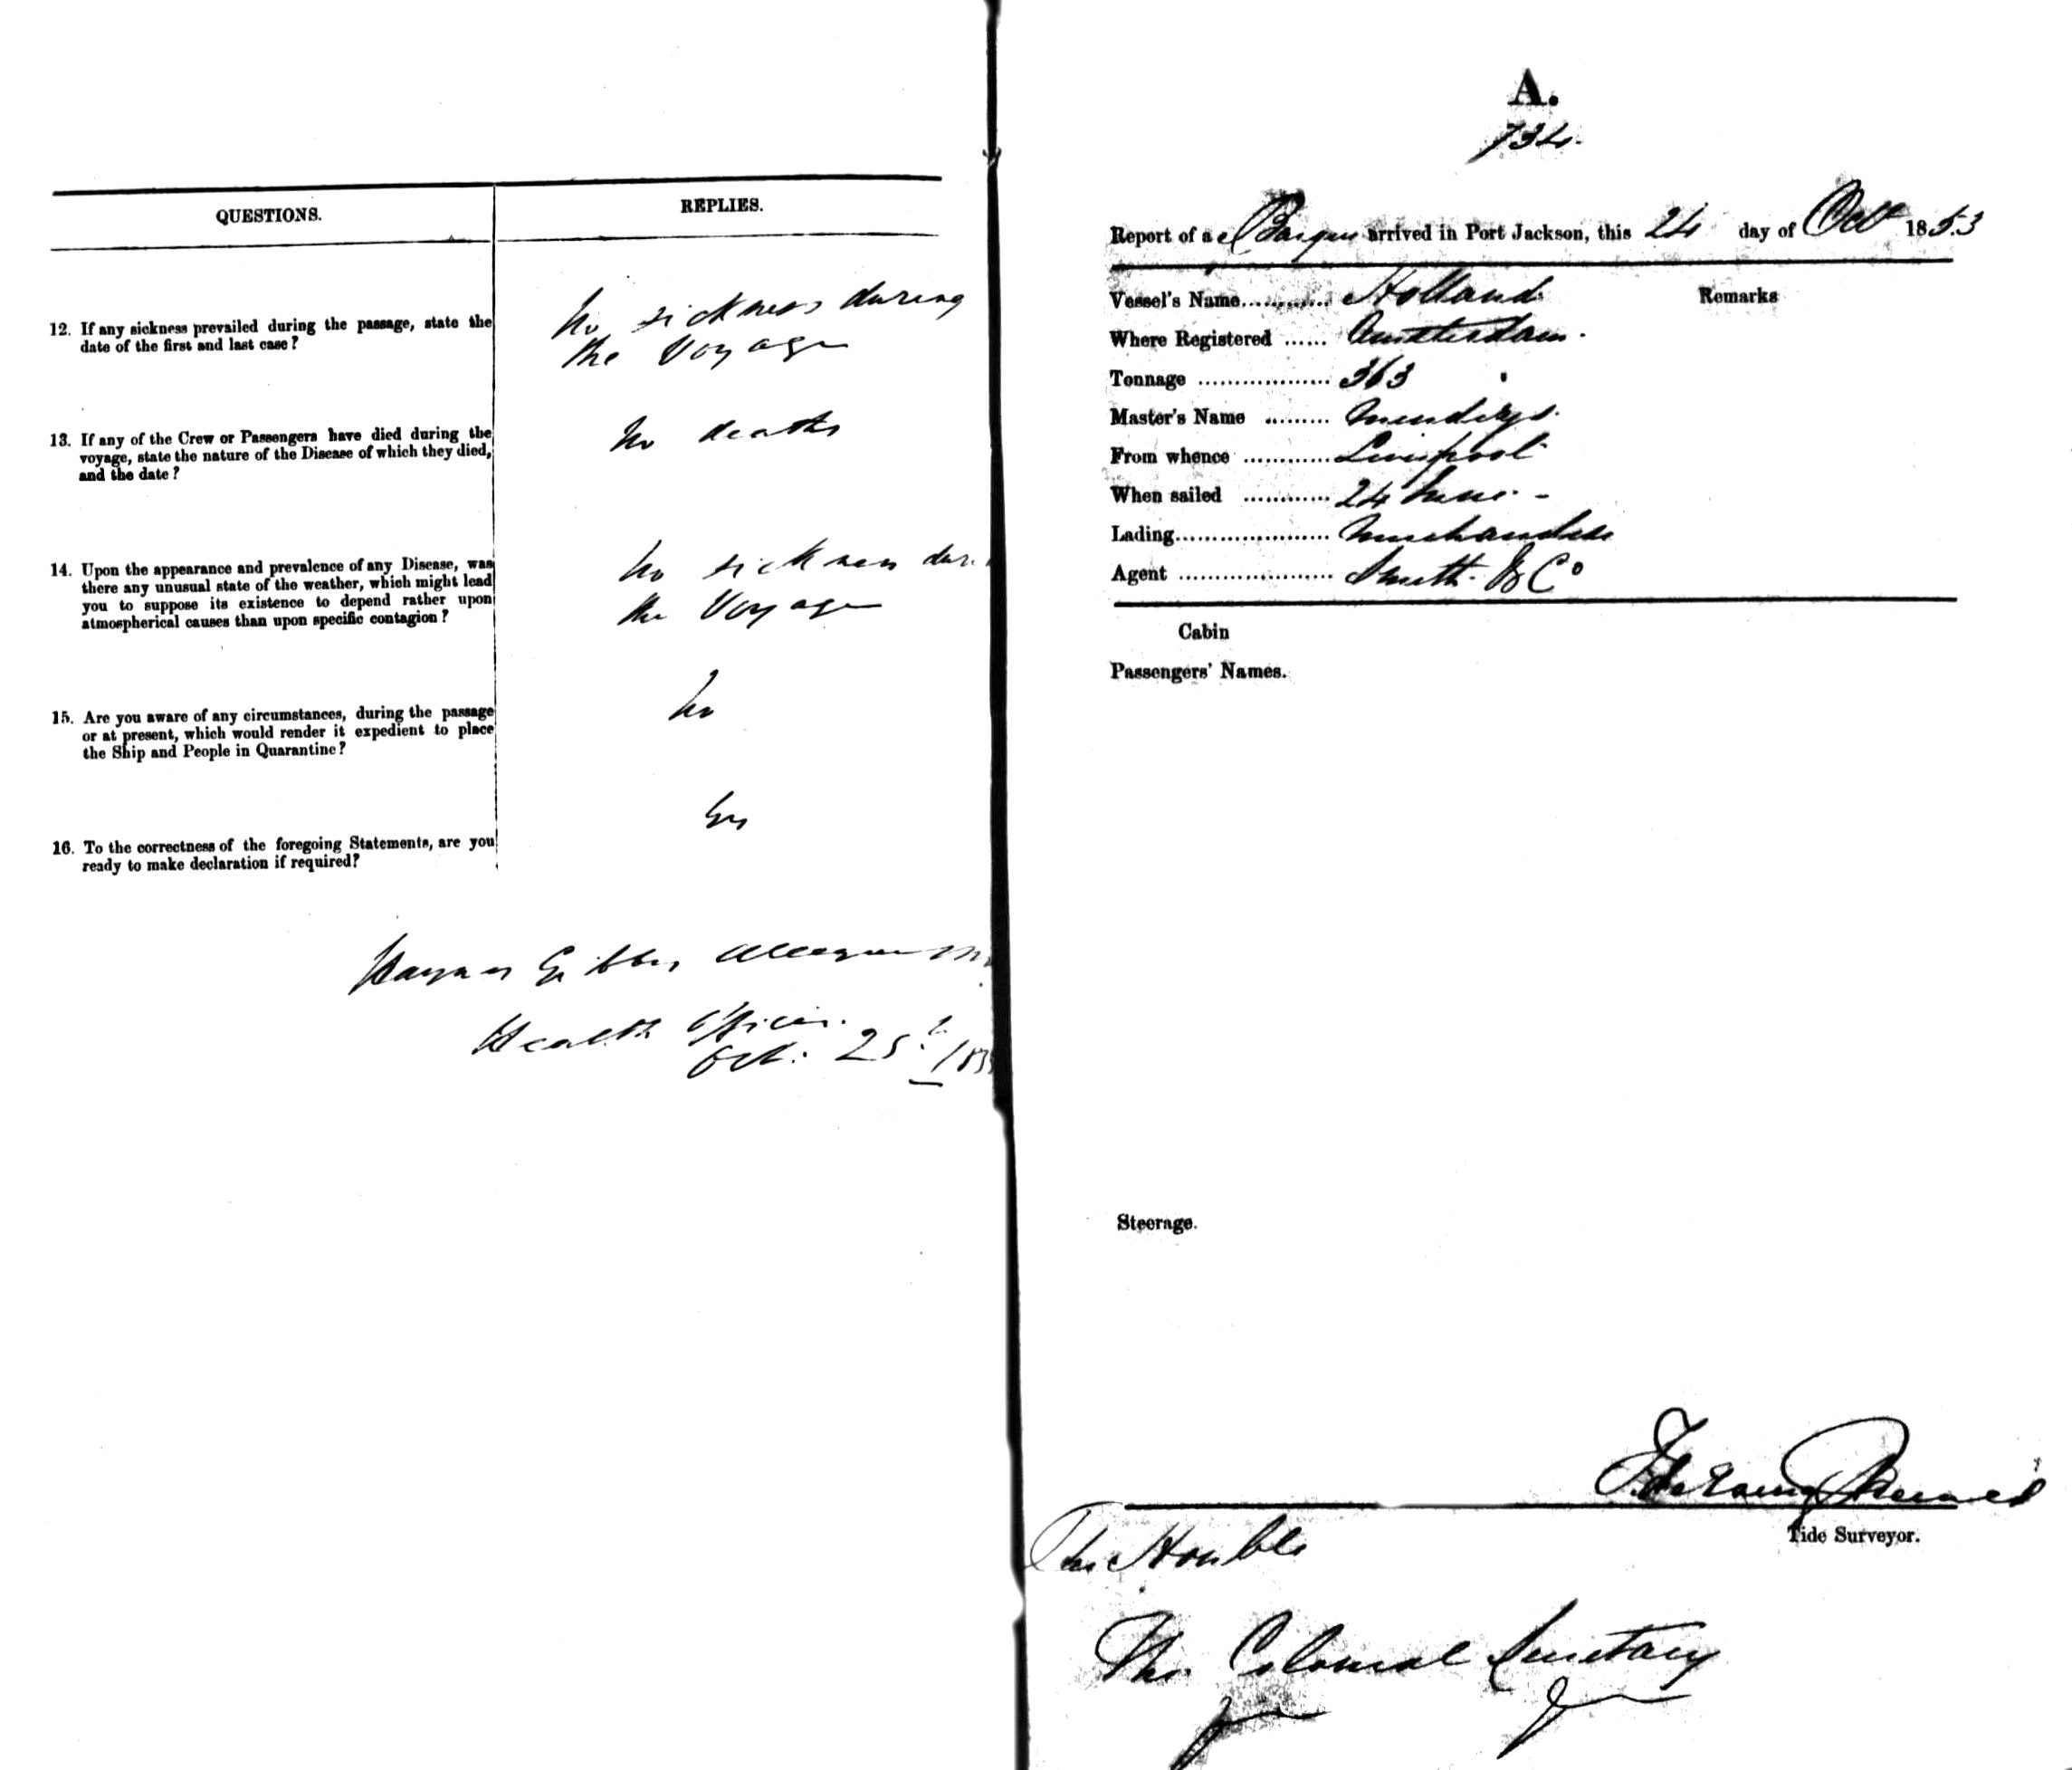 QUESTIONS.
REPLIES.
12. If any sickness prevailed during the passage, state the
date of the first and last case?
No sickness during
the Voyage
13. If any of the Crew or Passengers have died during the
voyage, state the nature of the Disease of which they died,
and the date?
No deaths
14. Upon the appearance and prevalence of any Disease, was
there any unusual state of the weather, which might lead
you to suppose its existence to depend rather upon
atmospherical causes than upon specific contagion?
No sickness dur
the Voyage
15. Are you aware of any circumstances, during the passage
or at present, which would render it expedient to place
the Ship and People in Quarantine?
No
16. To the correctness of the foregoing Statements, are you
ready to make declaration if required?
Yes
Haynes Gibbes Alleyne M
Health Officer
Oct: 25th 185
A.
734.
Report of a Barque arrived in Port Jackson, this 24 day of Oct 1853
Vessel's Name............ Holland
Remarks
Where Registered ...... Amsterdam.
Tonnage .................. 363
Master's Name .........
From whence ............ Liverpool
When sailed ............ 24 June -
Lading..................... Merchandise
Agent ..................... Smith & Co
Cabin
Passengers' Names.
Steerage.
Tide Surveyor.
The Honble
The Colonial Secretary